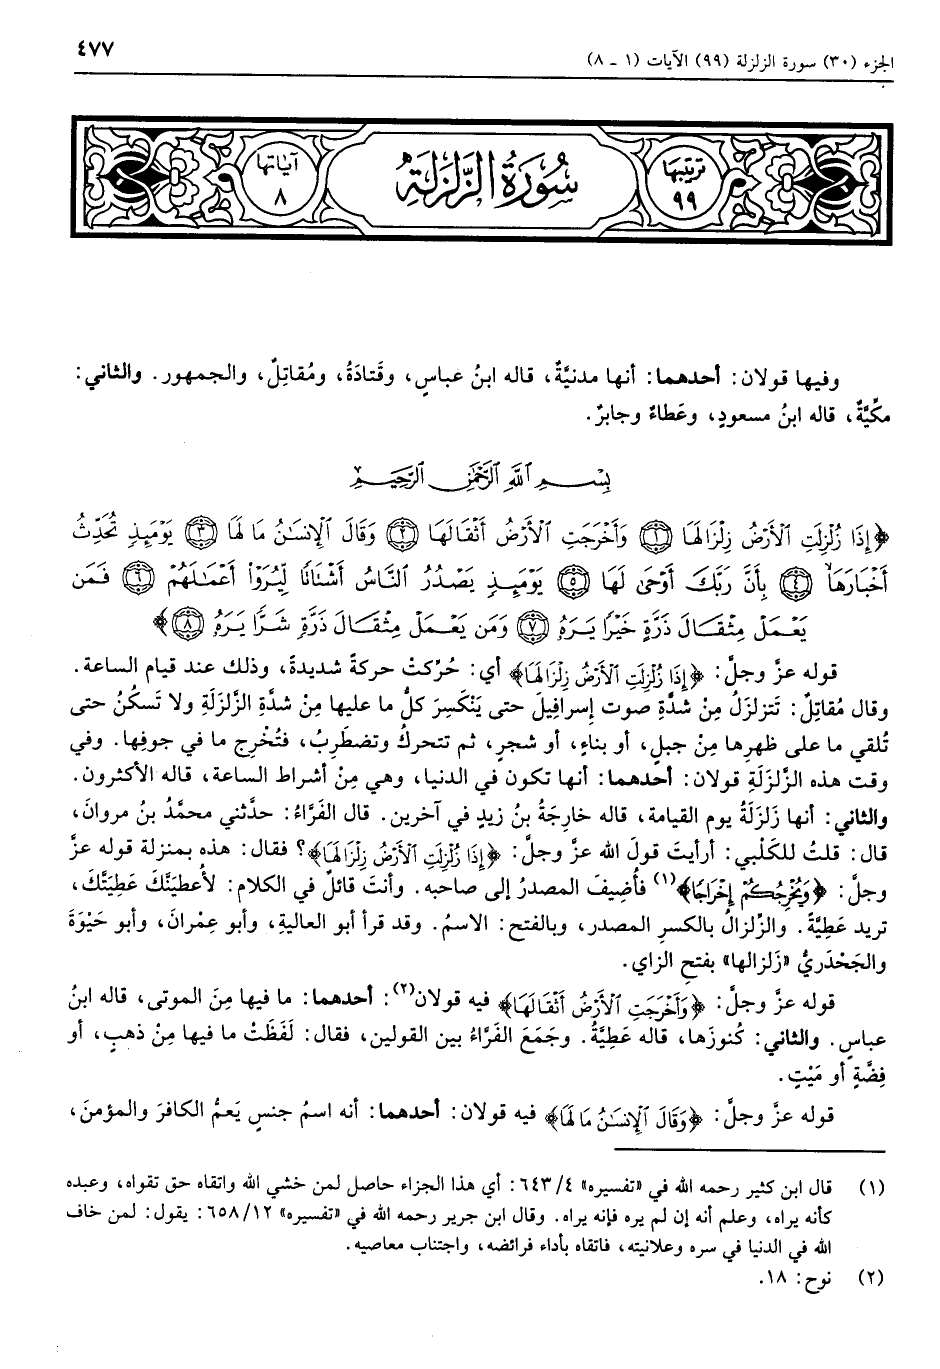 الجزء (٣٠) سورة الزلزلة (٩٩) الآيات (١ - ٨)
٤٧٧
ترتيبها ٩٩
سُورَةُ الزَّلزَلة
آياتها ٨
وفيها قولان: أحدهما: أنها مدنيَّةٌ، قاله ابنُ عباسٍ، وقَتادَةُ، ومُقاتِلٌ، والجمهور. والثاني:
مكِّيَّةٌ، قاله ابنُ مسعودٍ، وعَطاءٌ وجابرٌ.
بِسْمِ اللَّهِ الرَّحْمَٰنِ الرَّحِيمِ
﴿إِذَا زُلْزِلَتِ ٱلْأَرْضُ زِلْزَالَهَا ١ وَأَخْرَجَتِ ٱلْأَرْضُ أَثْقَالَهَا ٢ وَقَالَ ٱلْإِنسَٰنُ مَا لَهَا ٣ يَوْمَئِذٍ تُحَدِّثُ
أَخْبَارَهَا ٤ بِأَنَّ رَبَّكَ أَوْحَىٰ لَهَا ٥ يَوْمَئِذٍ يَصْدُرُ ٱلنَّاسُ أَشْتَاتًا لِّيُرَوْا۟ أَعْمَٰلَهُمْ ٦ فَمَن
يَعْمَلْ مِثْقَالَ ذَرَّةٍ خَيْرًا يَرَهُ ٧ وَمَن يَعْمَلْ مِثْقَالَ ذَرَّةٍ شَرًّا يَرَهُ ٨﴾
قوله عزَّ وجلَّ: ﴿إِذَا زُلْزِلَتِ ٱلْأَرْضُ زِلْزَالَهَا﴾ أي: حُرِّكتْ حركةً شديدةً، وذلك عند قيام الساعة.
وقال مُقاتِلٌ: تَتزلزَلُ مِنْ شدَّةِ صوت إسرافيلَ حتى يَنْكَسِرَ كلُّ ما عليها مِنْ شدَّةِ الزَّلزَلَةِ ولا تَسكُنُ حتى
تُلقي ما على ظهرِها مِنْ جبلٍ، أو بناءٍ، أو شجرٍ، ثم تتحركُ وتضطَرِبُ، فتُخْرِج ما في جوفِها. وفي
وقت هذه الزَّلزَلَةِ قولان: أحدهما: أنها تكون في الدنيا، وهي مِنْ أشراط الساعة، قاله الأكثرون.
والثاني: أنها زَلزَلَةُ يوم القيامة، قاله خارِجَةُ بنُ زيدٍ في آخرين. قال الفَرَّاءُ: حدَّثني محمَّدُ بنُ مروانَ،
قال: قلتُ للكَلْبي: أرأيتَ قولَ الله عزَّ وجلَّ: ﴿إِذَا زُلْزِلَتِ ٱلْأَرْضُ زِلْزَالَهَا﴾؟ فقال: هذه بمنزلة قوله عزَّ
وجلَّ: ﴿وَيُخْرِجُكُمْ إِخْرَاجًا﴾(١) فأُضِيفَ المصدرُ إلى صاحبه. وأنتَ قائلٌ في الكلام: لأُعطيَنَّكَ عَطِيَّتَكَ،
تريد عَطِيَّةً. والزِّلزالُ بالكسرِ المصدر، وبالفتح: الاسمُ. وقد قرأ أبو العاليةِ، وأبو عِمْرانَ، وأبو حَيْوَةَ
والجَحْدَريُّ «زَلزالها» بفتح الزاي.
قوله عزَّ وجلَّ: ﴿وَأَخْرَجَتِ ٱلْأَرْضُ أَثْقَالَهَا﴾ فيه قولان(٢): أحدهما: ما فيها مِنَ الموتى، قاله ابنُ
عباسٍ. والثاني: كُنوزَها، قاله عَطِيَّةُ. وجَمَعَ الفَرَّاءُ بين القولين، فقال: لَفَظَتْ ما فيها مِنْ ذهبٍ، أو
فِضَّةٍ أو مَيْتٍ.
قوله عزَّ وجلَّ: ﴿وَقَالَ ٱلْإِنسَٰنُ مَا لَهَا﴾ فيه قولان: أحدهما: أنه اسمُ جنسٍ يَعمُّ الكافرَ والمؤمنَ،
(١) قال ابن كثير رحمه الله في «تفسيره» ٤/ ٦٤٣: أي هذا الجزاء حاصل لمن خشي الله واتقاه حق تقواه، وعبده
كأنه يراه، وعلم أنه إن لم يره فإنه يراه. وقال ابن جرير رحمه الله في «تفسيره» ١٢/ ٦٥٨: يقول: لمن خاف
الله في الدنيا في سره وعلانيته، فاتقاه بأداء فرائضه، واجتناب معاصيه.
(٢) نوح: ١٨.